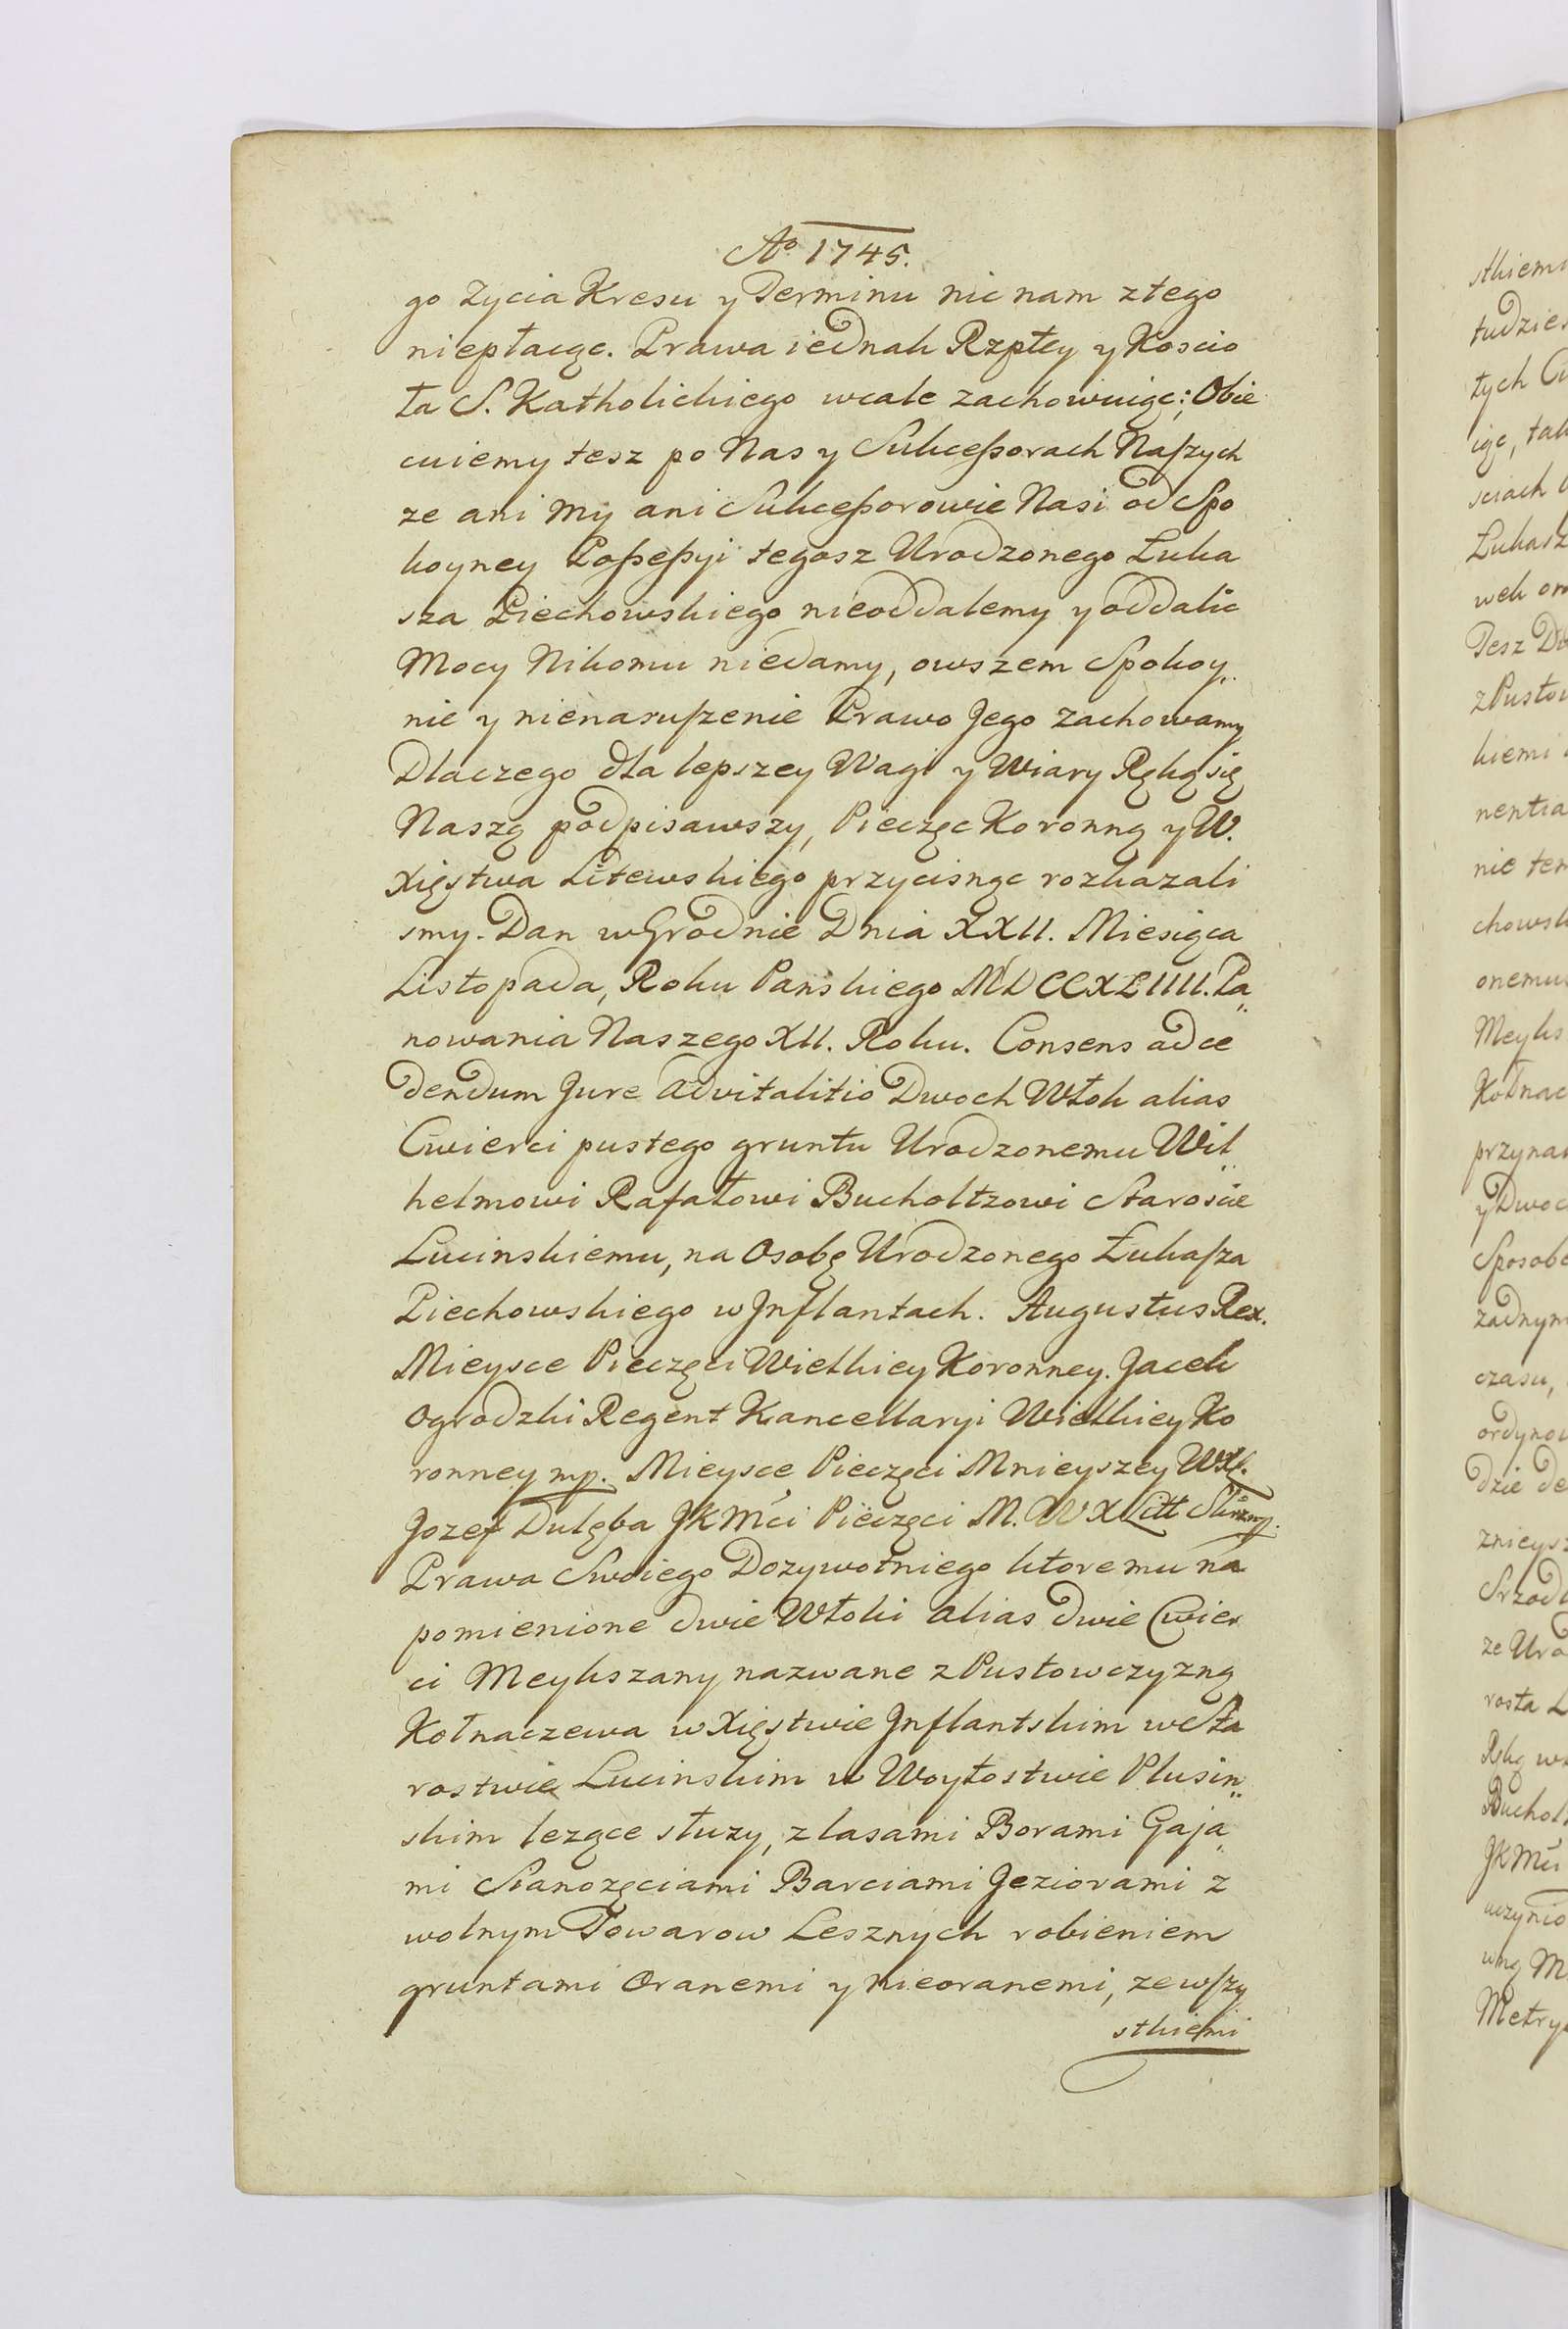 Aº 1745.
go Zycia Kresu y Terminu nic nam z tego
niepłacąc. Prawa iednak Rzpłty y Koscio
ła S. Katholickiego wcale zachowuiąc; Obie
cuiemy tesz po Nas y Sukceßorach Naszych
ze ani My ani Sukceßorowie Nasi od Spo
koyney Poßeßyi tegosz Urodzonego Łuka
sza Piechowskiego nieoddalemy y oddalic
Mocy Nikomu niedamy, owszem Spokoy„
nie y nienaruszenie Prawo Jego zachowamy
Dlaczego dla lepszey Wagi y Wiary Ręką się
Naszą podpisawszy, Pieczęc Koronną y W.
Xięstwa Litewskiego przycisnąc rozkazali
smy. Dan w Grodnie Dnia XXII. Miesiąca
Listopada, Roku Panskiego MDCCXLIIII. Pa„
nowania Naszego XII. Roku. Consens ad ce
dendum Jure Advitalitio Dwoch Włok alias
Cwierci pustego gruntu Urodzonemu Wil„
helmowi Rafałowi Bucholtzowi Staroscie
Lucinskiemu, na Osobę Urodzonego Łukasza
Piechowskiego w Jnflantach. Augustus Rex.
Mieysce Pieczęci Wielkiey Koronney. Jacek
Ogrodzki Regent Kancellaryi Wielkiey Ko
ronney mp. Mieysce Pieczęci Mnieyszey WXL.
Jozef Dulęba JKMći Pieczęci M. W X Litt
Prawa Swoiego Dozywotniego ktoremu na
pomienione dwie Włoki alias dwie Cwier
ci Meykszany nazwane z Pustowczyzną
Kołnaczewa w Xięstwie Jnflantskim w Sta
rostwie Lucinskim w Woytostwie Plusin„
skim lezące słuzy, z lasami Borami Gaja„
mi Sianozęciami Barciami Jeziorami z
wolnym Towarow Lesznych robieniem
gruntami Oranemi y nieoranemi, ze wszy
stkiemi
stkiemi
tych
iąc, tak
sciach
Tesz
kiemi
nentia
nie tem
onemu
Meyks
Kołnac
y Dwoc
czasu,
dzie de
JKMći
Metry